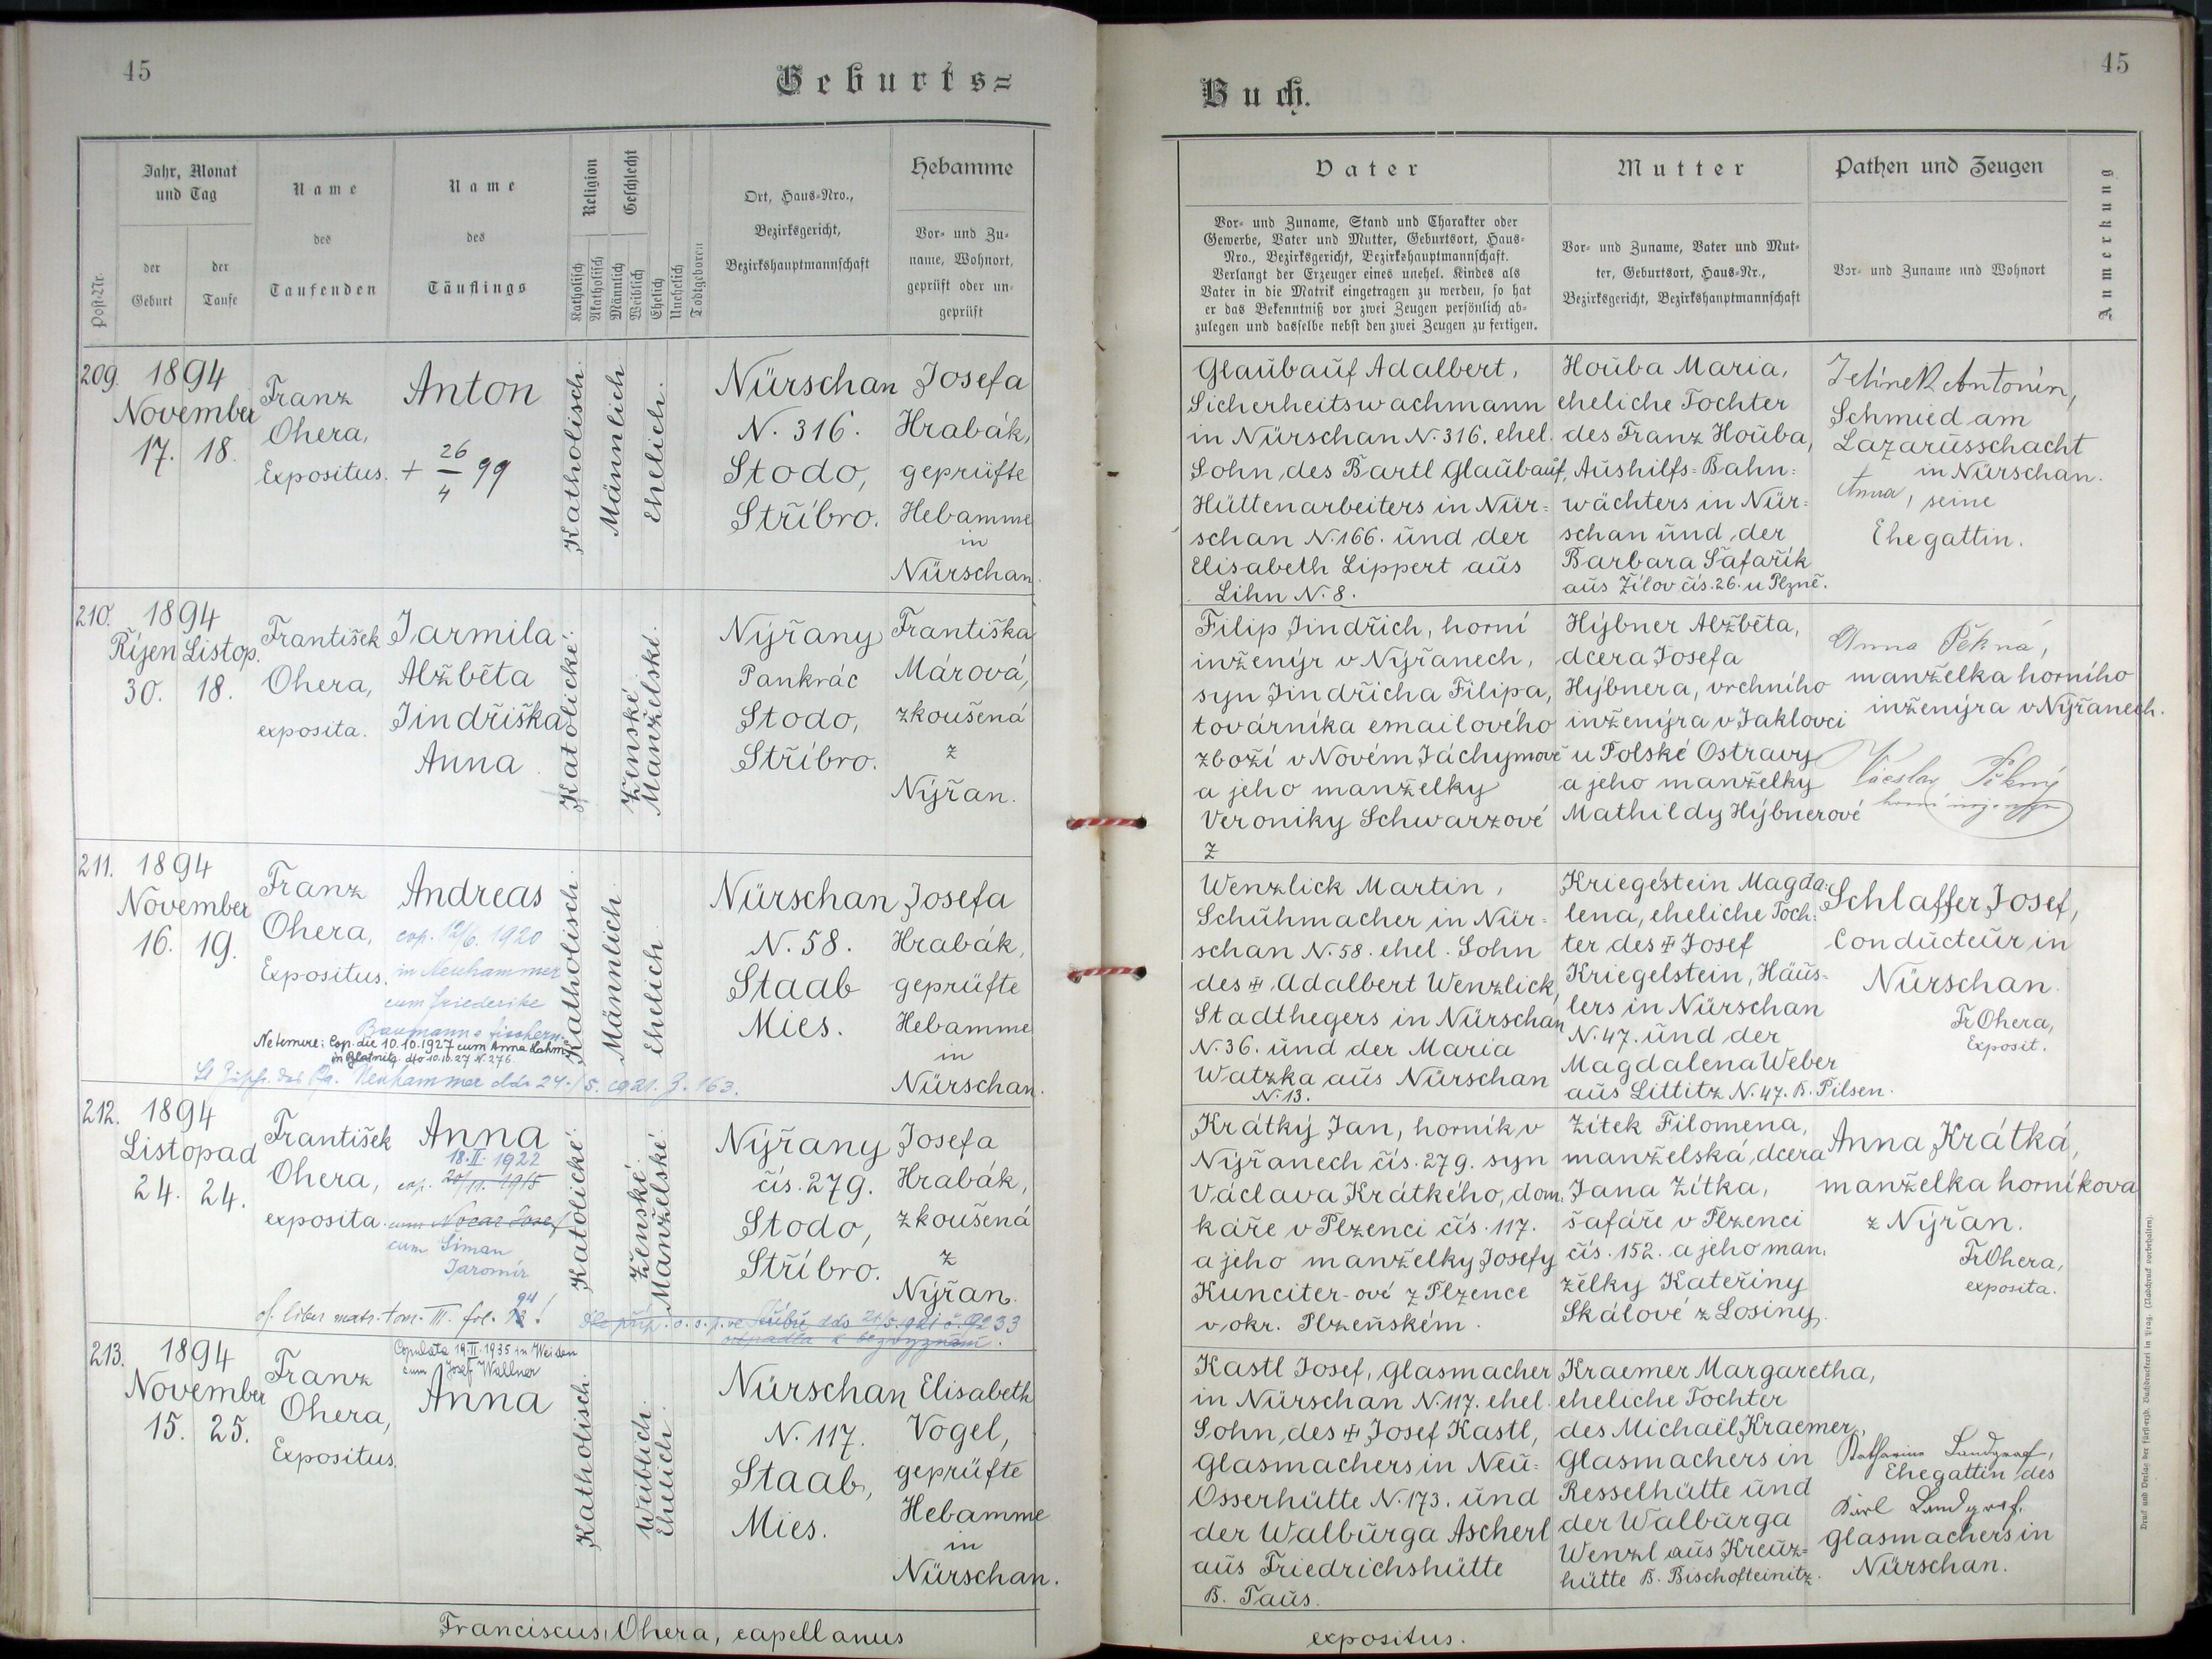 45
Geburts=
Post-Nr.
Jahr, Monat
und Tag
der
Geburt
der
Taufe
Name
des
Taufenden
Name
des
Täuflings
Religion
Katholisch
Akatholisch
Geschlecht
Männlich
Weiblich
Ehelich
Unehelich
Todtgeboren
Ort, Haus=Nro.,
Bezirksgericht,
Bezirkshauptmannschaft
Hebamme
Vor= und Zu=
name, Wohnort,
geprüft oder un=
geprüft
209.
1894
November
17. 18.
Franz
Ohera,
Expositus.
Anton
+ 26/4 99
Katholisch.
Männlich
Ehelich.
Nürschan
N. 316.
Stodo,
Stříbro.
Josefa
Hrabák,
geprüfte
Hebamme
in
Nürschan.
210.
1894
Říjen Listop.
30. 18.
František
Ohera,
exposita.
Jarmila
Alžběta
Jindřiška
Anna
Katolické.
Ženské.
Manželské.
Nýřany
Pankrác
Stodo,
Stříbro.
Františka
Márová,
zkoušená
z
Nýřan.
211.
1894
November
16. 19.
Franz
Ohera,
Expositus.
Andreas
cop. 12/6. 1920
in Neuhammer
cum Friederike
Baumann
Ne temere: Cop. die 10.10.1927 cum Anna Hahm
in Blatnitz dto 10.10.27 N. 276.
Neuhammer ddo 24./5. 1921. Z. 163.
Katholisch.
Männlich.
Ehelich
Nürschan
N. 58.
Staab
Mies.
Josefa
Hrabák,
geprüfte
Hebamme
in
Nürschan.
212.
1894
Listopad
24. 24.
František
Ohera,
exposita.
Anna
18.II. 1922
cop. 20/11. 1915
cum Nocar Josef
cum Šiman
Jaromír
cf. liber matr. tom. III. fol. 94!
Katolické.
Ženské.
Manželské.
Nýřany
čís. 279.
Stodo,
Stříbro.
Josefa
Hrabák,
zkoušená
z
Nýřan.
213.
1894
November
15. 25.
Franz
Ohera,
Expositus.
Copulata 19.II.1935 in Weiden
cum Josef Wallner
Anna
Katholisch.
Weiblich.
Ehelich.
Nürschan
N. 117.
Staab,
Mies.
Elisabeth
Vogel,
geprüfte
Hebamme
in
Nürschan.
Franciscus Ohera, capellanus
45
Buch.
Vater
Vor= und Zuname, Stand und Charakter oder
Gewerbe, Vater und Mutter, Geburtsort, Haus=
Nro., Bezirksgericht, Bezirkshauptmannschaft.
Verlangt der Erzeuger eines unehel. Kindes als
Vater in die Matrik eingetragen zu werden, so hat
er das Bekenntniß vor zwei Zeugen persönlich ab=
zulegen und dasselbe nebst den zwei Zeugen zu fertigen.
Mutter
Vor= und Zuname, Vater und Mut=
ter, Geburtsort, Haus=Nr.,
Bezirksgericht, Bezirkshauptmannschaft
Pathen und Zeugen
Vor= und Zuname und Wohnort
Anmerkung
Glaubauf Adalbert,
Sicherheitswachmann
in Nürschan N. 316. ehel.
Sohn des Bartl Glaubauf,
Hüttenarbeiters in Nür=
schan N. 166. und der
Elisabeth Lippert aus
Lihn N. 8.
Houba Maria,
eheliche Tochter
des Franz Houba,
Aushilfs=Bahn=
wächters in Nür=
schan und der
Barbara Šafařík
aus Žilov čís. 26. u Plzně.
Jelínek Antonín,
Schmied am
Lazarusschacht
in Nürschan.
Anna, seine
Ehegattin.
Filip Jindřich, horní
inženýr v Nýřanech,
syn Jindřicha Filipa,
továrníka emailového
zboží v Novém Jáchymově
a jeho manželky
Veroniky Schwarzové
z
Hýbner Alžběta,
dcera Josefa
Hýbnera, vrchního
inženýra v Jaklovci
u Polské Ostravy
a jeho manželky
Mathildy Hýbnerové
Anna Pěkná,
manželka horního
inženýra v Nýřanech.
Václav Pěkný
horní
Wenzlick Martin,
Schuhmacher in Nür=
schan N. 58. ehel. Sohn
des ✠ Adalbert Wenzlick,
Stadthegers in Nürschan
N. 36. und der Maria
Watzka aus Nürschan
N. 13.
Kriegelstein Magda=
lena, eheliche Toch=
ter des ✠ Josef
Kriegelstein, Häus=
lers in Nürschan
N. 47. und der
Magdalena Weber
aus Littitz N. 47. B. Pilsen.
Schlaffer Josef,
Conducteur in
Nürschan.
Fr Ohera,
Exposit.
Krátký Jan, horník v
Nýřanech čís. 279. syn
Václava Krátkého, dom=
káře v Plzenci čís. 117.
a jeho manželky Josefy
Kunciter-ové z Plzence
v okr. Plzeňském.
Žitek Filomena,
manželská dcera
Jana Žitka,
šafáře v Plzenci
čís. 152. a jeho man=
želky Kateřiny
Skálové z Losiny.
Anna Krátká,
manželka horníkova
z Nýřan.
Fr Ohera,
exposita.
Kastl Josef, Glasmacher
in Nürschan N. 117. ehel.
Sohn des ✠ Josef Kastl,
Glasmachers in Neu=
Osserhütte N. 173. und
der Walburga Ascherl
aus Friedrichshütte
B. Taus.
Kraemer Margaretha,
eheliche Tochter
des Michael Kraemer,
Glasmachers in
Resselhütte und
der Walburga
Wenzl aus Kreuz=
hütte B. Bischofteinitz.
Katharina Landgraf,
Ehegattin des
Karl Landgraf,
Glasmachers in
Nürschan.
expositus.
Druck und Verlag der fürsterzb. Buchdruckerei in Prag. (Nachdruck vorbehalten).